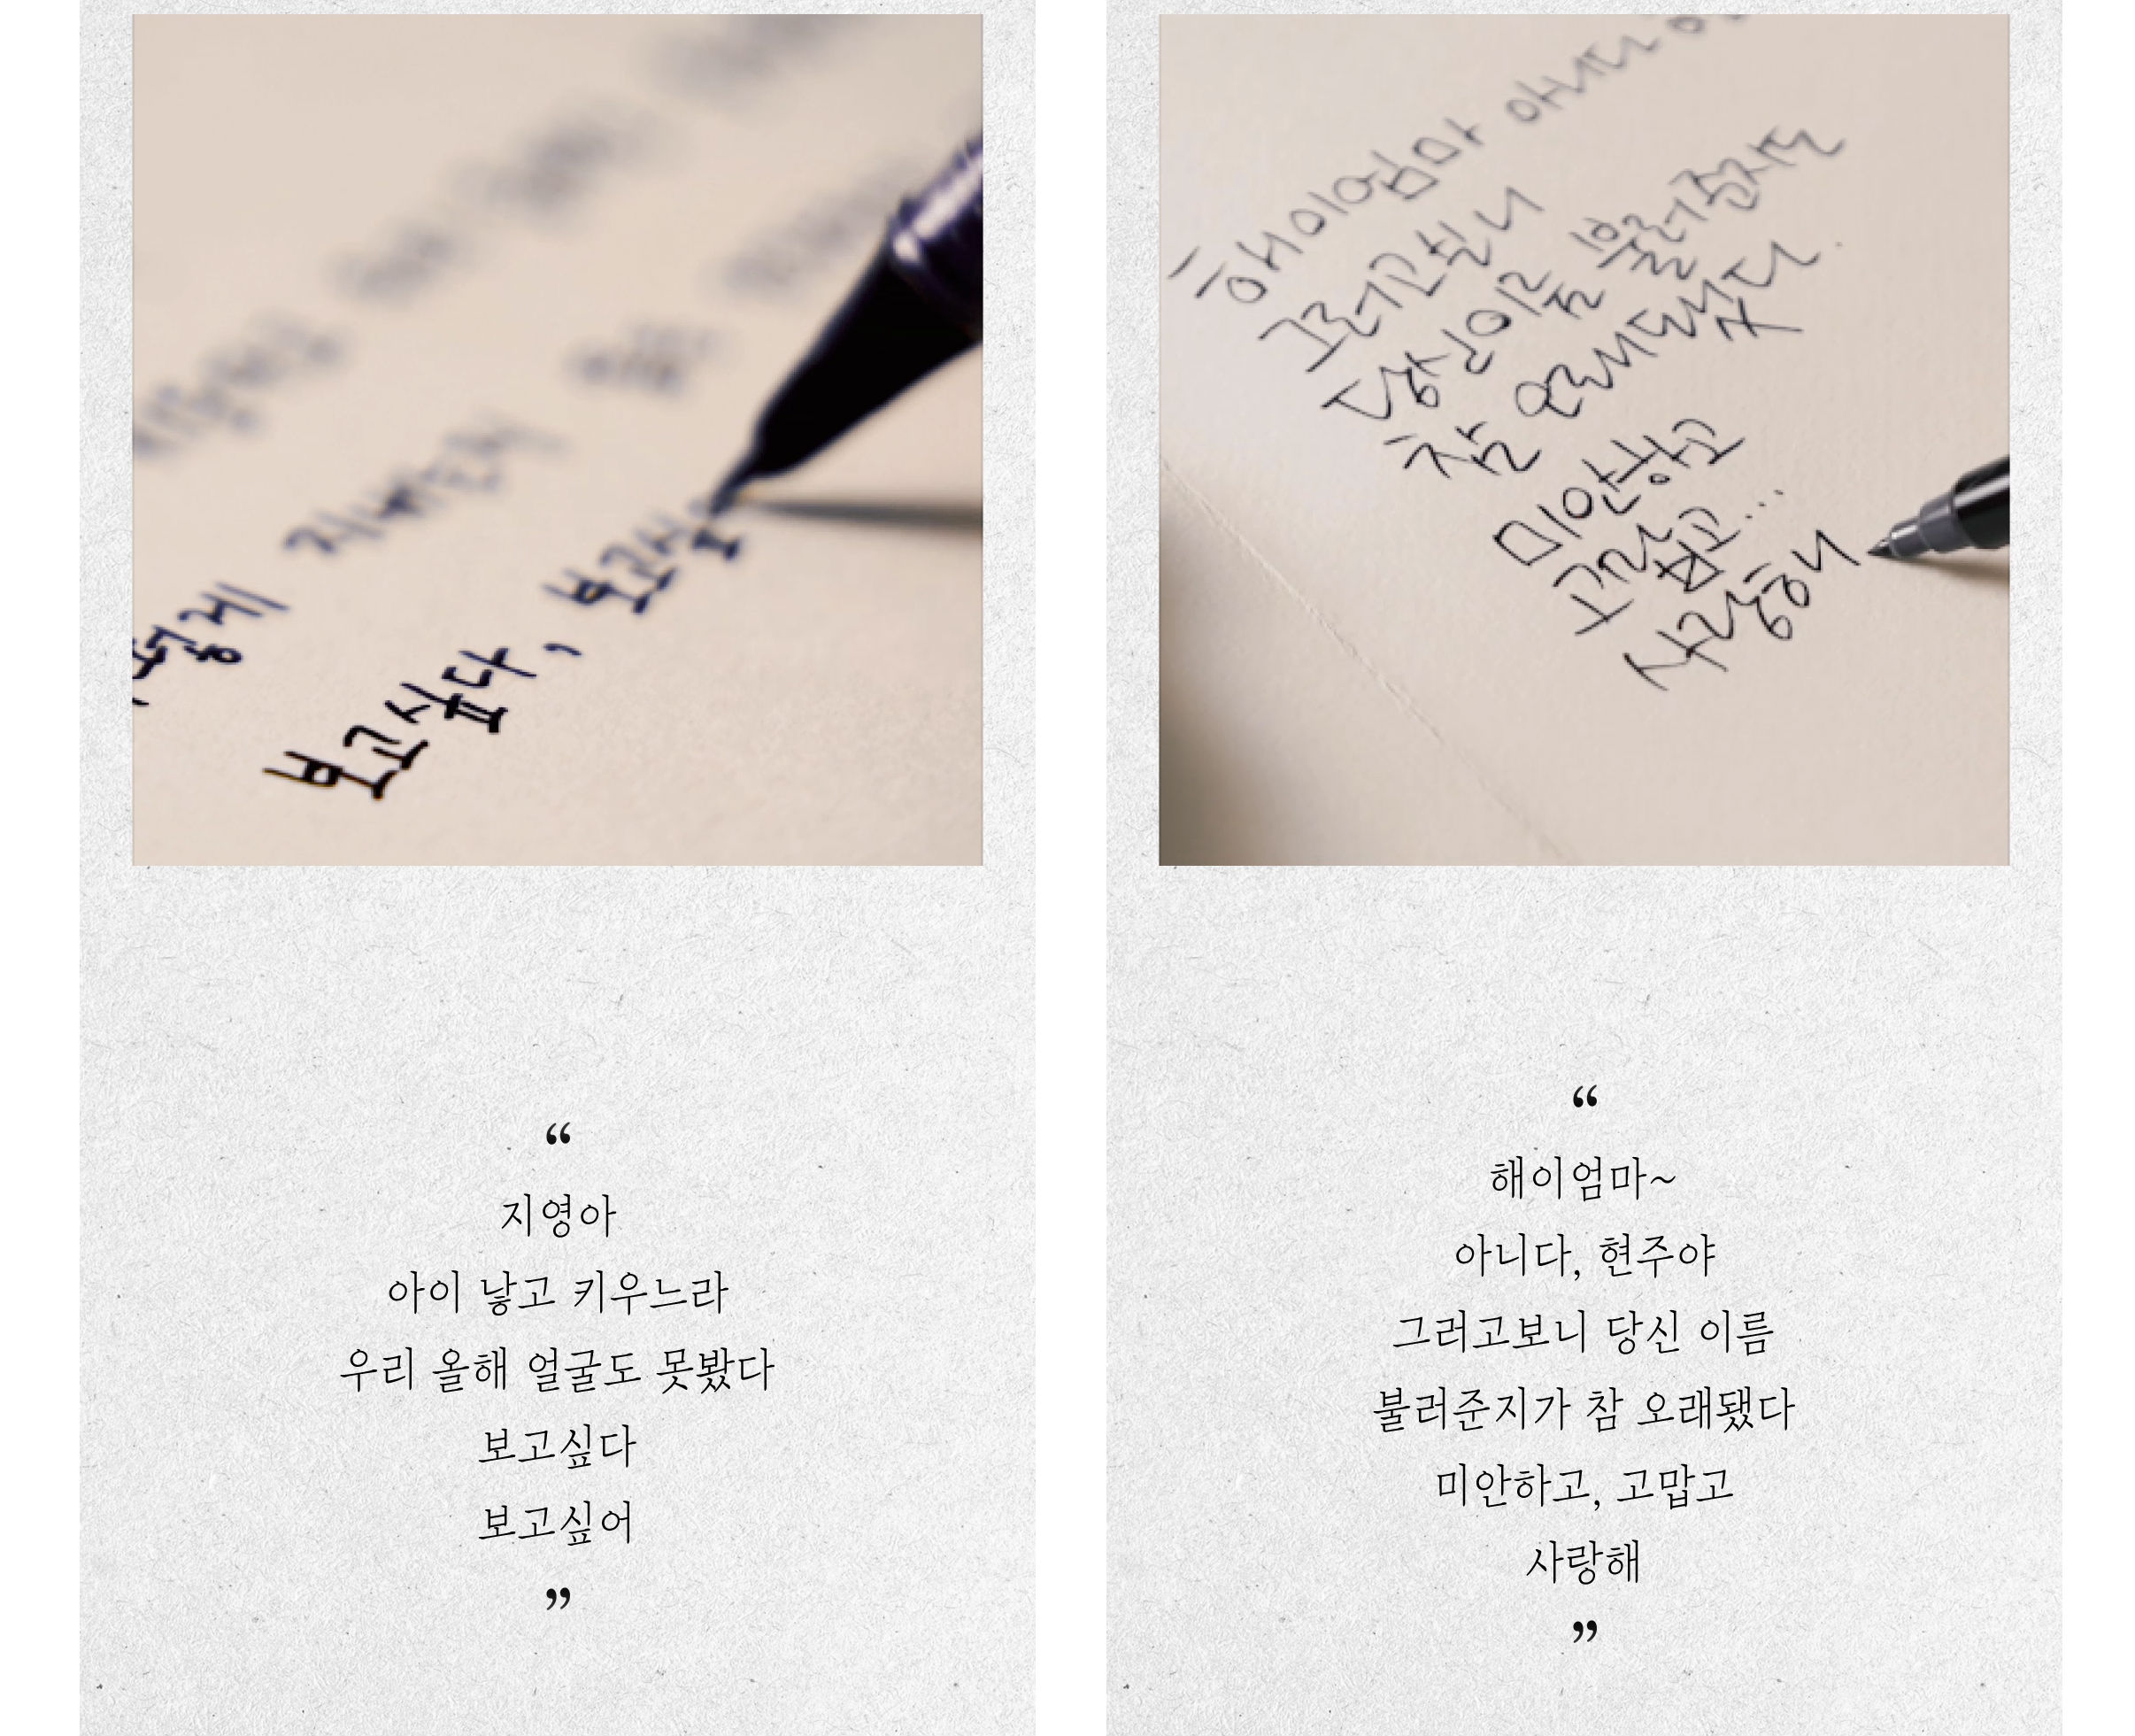 게
보고싶다, 보고싶
“
지영아
아이 낳고 키우느라
우리 올해 얼굴도 못봤다
보고싶다
보고싶어
”
해이엄마 아니다
그러고보니
당신이름 불러준지도
참 오래됐다.
미안하고
고맙고...
사랑해
“
해이엄마~
아니다, 현주야
그러고보니 당신 이름
불러준지가 참 오래됐다
미안하고, 고맙고
사랑해
”